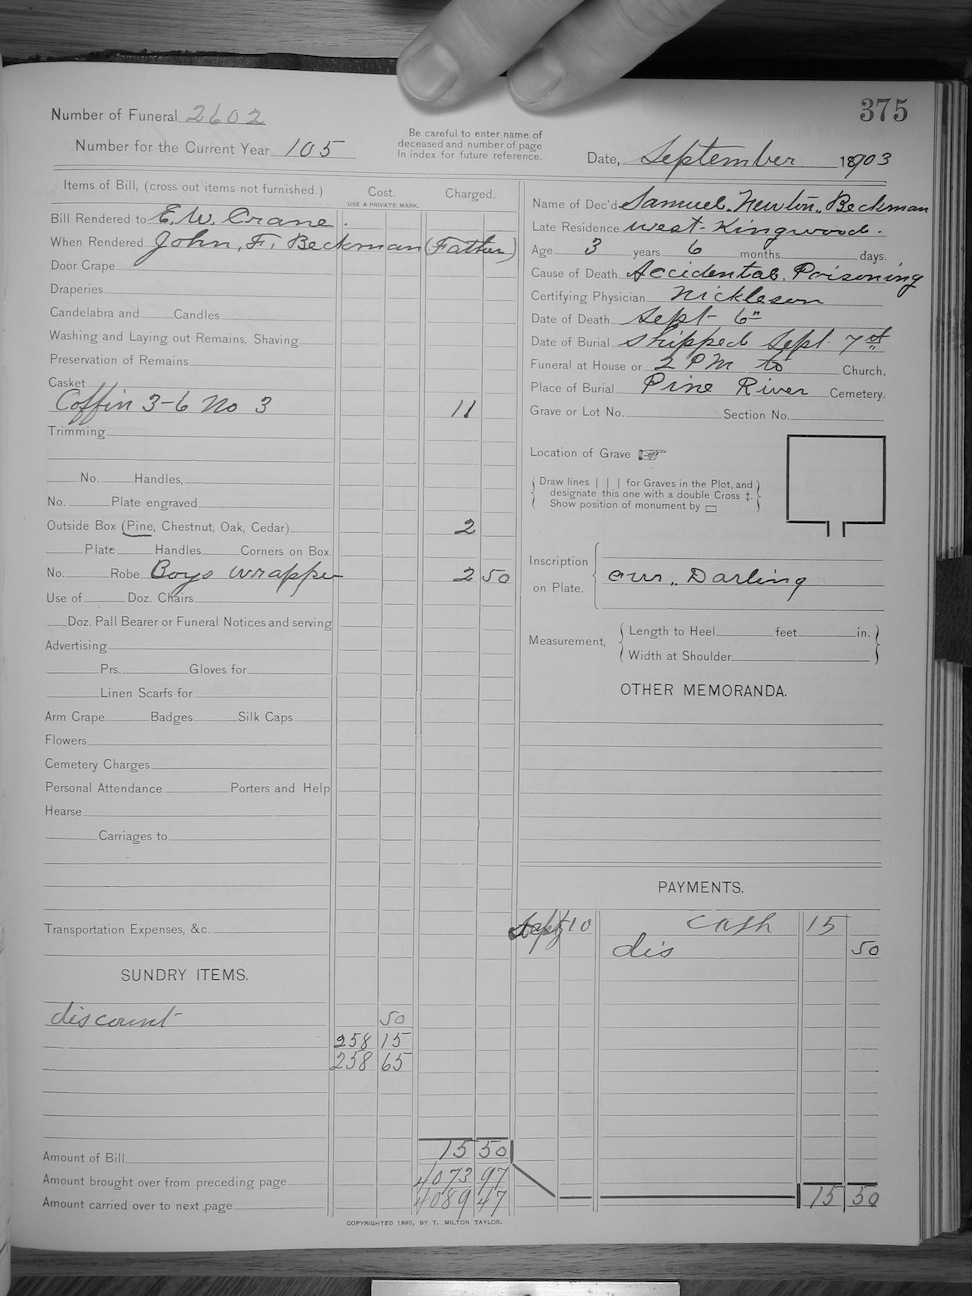 375
Number of Funeral 2602
Number for the Current Year 105
Be careful to enter name of
deceased and number of page
In index for future reference.
Date, September 1903
Items of Bill, (cross out items not furnished.) Cost. Charged.
USE A PRIVATE MARK.
Bill Rendered to E. W. Crane.
When Rendered John. F. Beckman (Father)
Door Crape
Draperies
Candelabra and Candles
Washing and Laying out Remains, Shaving
Preservation of Remains
Casket
Coffin 3-6 No 3 11
Trimming
No. Handles,
No. Plate engraved
Outside Box (Pine, Chestnut, Oak, Cedar) 2
Plate Handles Corners on Box.
No. Robe Boys wrapper 2 50
Use of Doz. Chairs
Doz. Pall Bearer or Funeral Notices and serving
Advertising
Prs. Gloves for
Linen Scarfs for
Arm Crape Badges Silk Caps
Flowers
Cemetery Charges
Personal Attendance Porters and Help
Hearse
Carriages to
Transportation Expenses, &c.
SUNDRY ITEMS.
discount 50
258 15
258 65
Amount of Bill 15 50
Amount brought over from preceding page 4073 97
Amount carried over to next page 4089 47
COPYRIGHTED 1890, BY T. MILTON TAYLOR.
Name of Dec'd Samuel. Newton. Beckman
Late Residence west Kingwood.
Age 3 years 6 months days.
Cause of Death Accidental Poisoning
Certifying Physician Nickleson
Date of Death Sept 6"
Date of Burial shipped Sept 7st
Funeral at House or 2 PM to Church.
Place of Burial Pine River Cemetery.
Grave or Lot No. Section No.
Location of Grave
Draw lines | | | for Graves in the Plot, and
designate this one with a double Cross ‡.
Show position of monument by
Inscription
on Plate. Our Darling
Measurement, Length to Heel feet in.
Width at Shoulder
OTHER MEMORANDA.
PAYMENTS.
Sept 10 Cash 15
dis 50
15 50